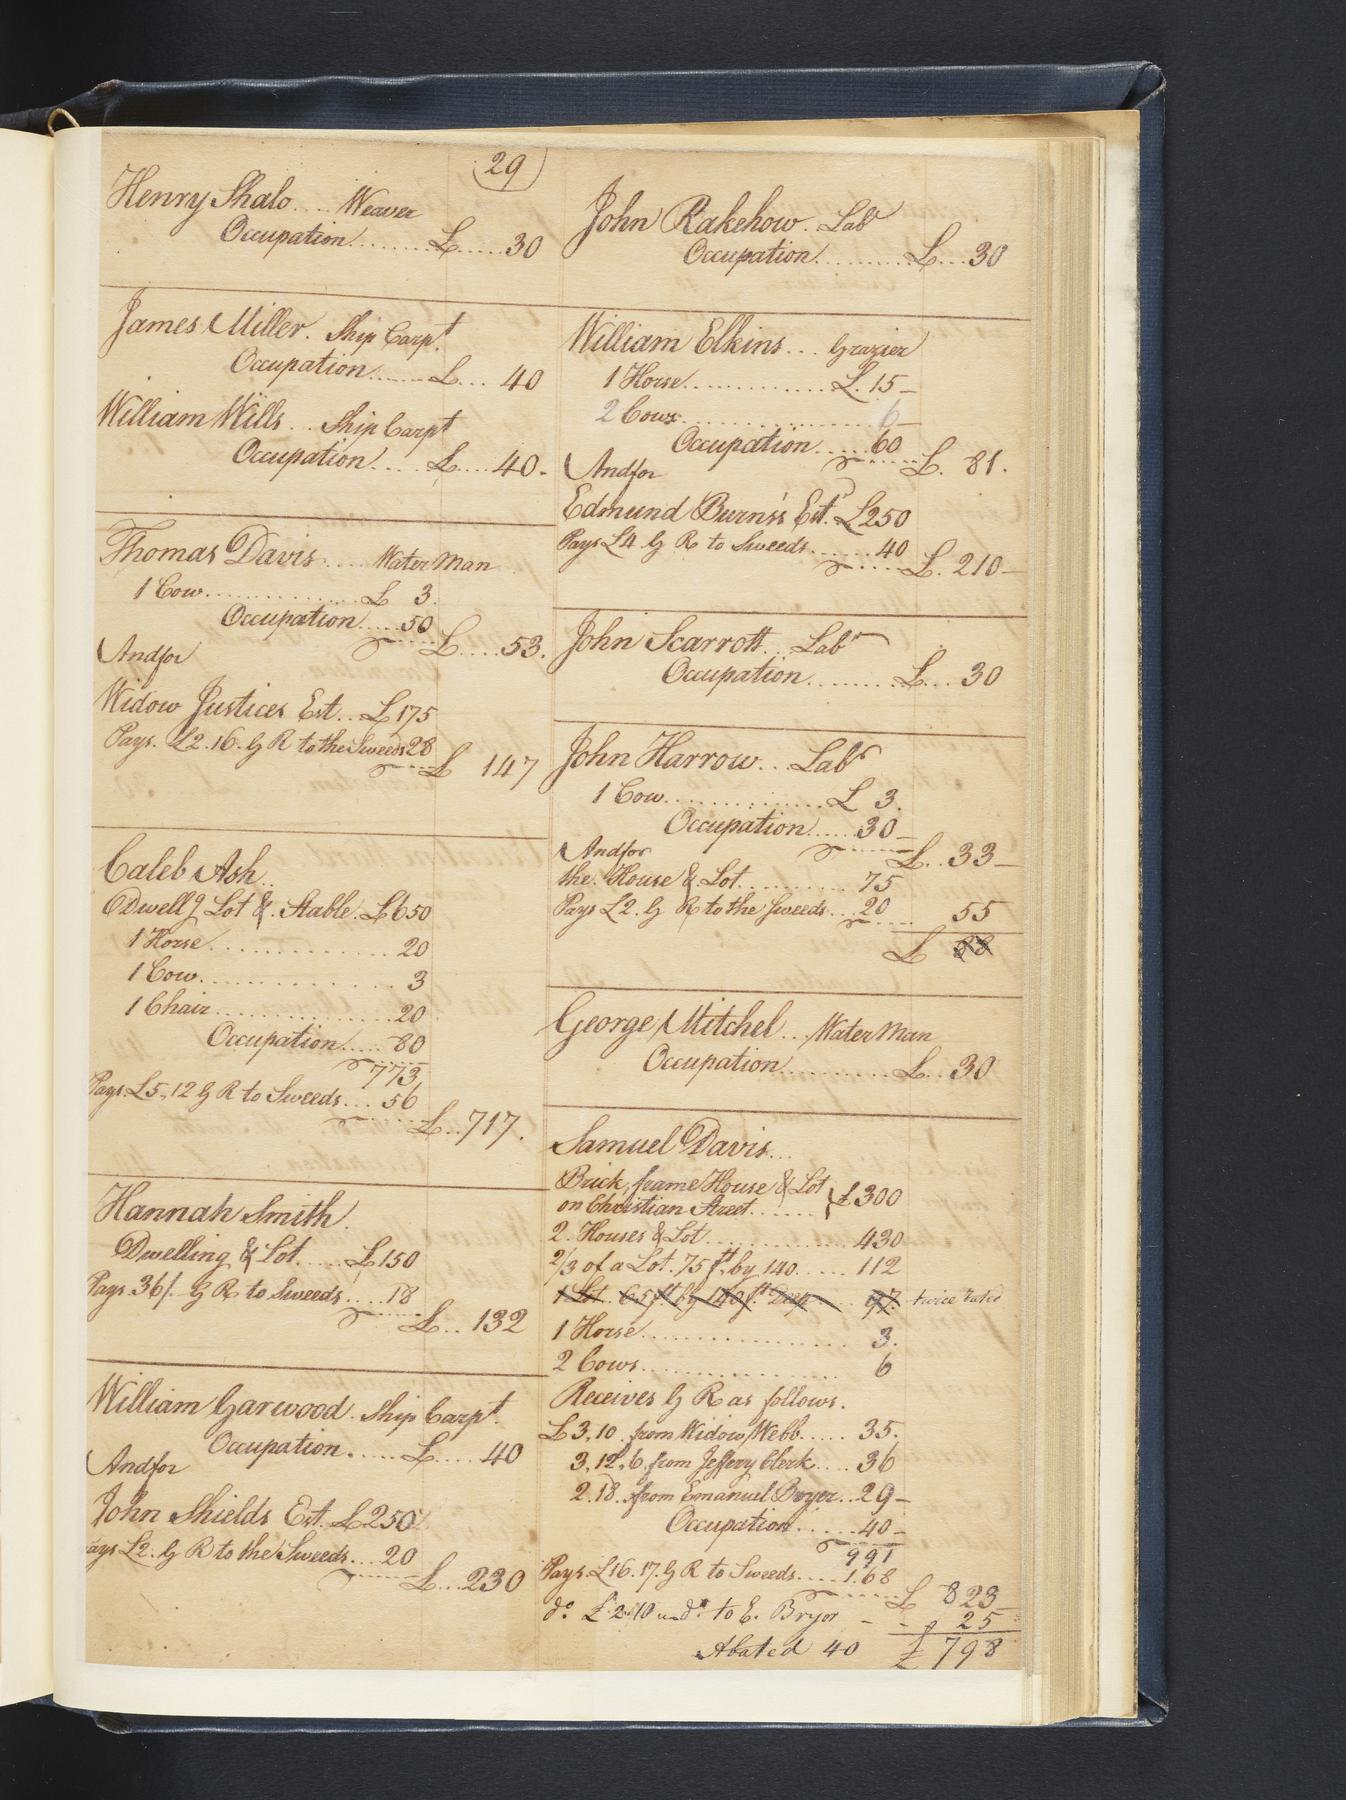 29
Henry Shalo.... Weaver
Occupation........£.....30
James Miller. Ship Carpt.
Occupation.......£... 40
William Wills... Ship Carpt
Occupation.....£....40-
Thomas Davis..... Water Man
1 Cow..............£ 3.
Occupation.....50
£.....53.
Andfor
Widow Justices Est...£175
Pays. £2.16. G R to the Sweeds 28
£ 147
Caleb Ash..
Dwellg Lot & Stable. £650
1 Horse..............20
1 Cow................3
1 Chair..............20
Occupation.....80
773
Pays. £5,,12 G R to Sweeds... 56
£..717.
Hannah Smith.
Dwelling & Lot......£150
Pays. 36/. G R to Sweeds.....18
£...132
William Garwood. Ship Carpt.
Occupation......£.....40
Andfor
John Shields Est. £250
ays £2. G R to the Sweeds....20
£...230
John Rakehow. Labr
Occupation..........£...30
William Elkins... Grazier
1 Horse..............£.15-
2 Cows................6-
Occupation.....60
£. 81.
Andfor
Edmund Burns's Est. £250
Pays £4. G R to Sweeds.......40
£. 210-
John Scarrott... Labr
Occupation........£...30
John Harrow... Labr
1 Cow...............£ 3.
Occupation.....30-
£...33-
Andfor
the House & Lot..........75
Pays £2. G R to the Sweeds...20
55
£ 88
George Mitchel... Water Man
Occupation..........£...30
Samuel Davis...
Brick, frame House & Lot
on Christian Street....... £300
2. Houses & Lot..............430
2/3 of a Lot. 75 ft. by 140......112
1 Lot.. 65 ft by 140 ft Deep..... 97. twice rated
1 Horse..................3.
2 Cows...................6
Receives G R as follows.
£3,,10. from Widow Webb.....35.
3,,12,,6. from Jeffery Clerk....36
2.18. from Emanuel Bryer..29-
Occupation......40-
991
Pays. £16.17. G R to Sweeds....1.68
£ 823
do £2,,10 do to E. Bryor - 25
Abated 40 £ 798